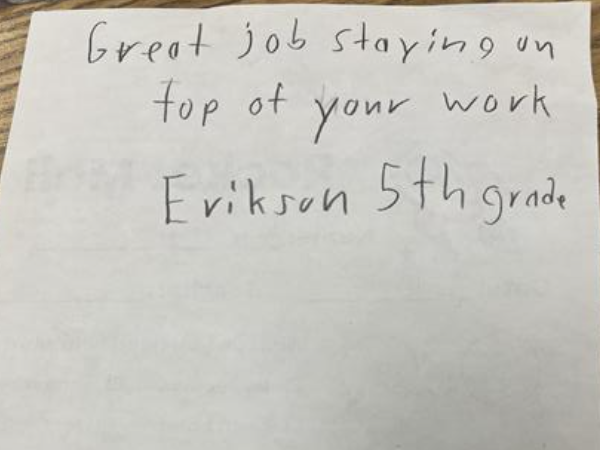 Great job staying on
top of your work
Erikson 5th grade